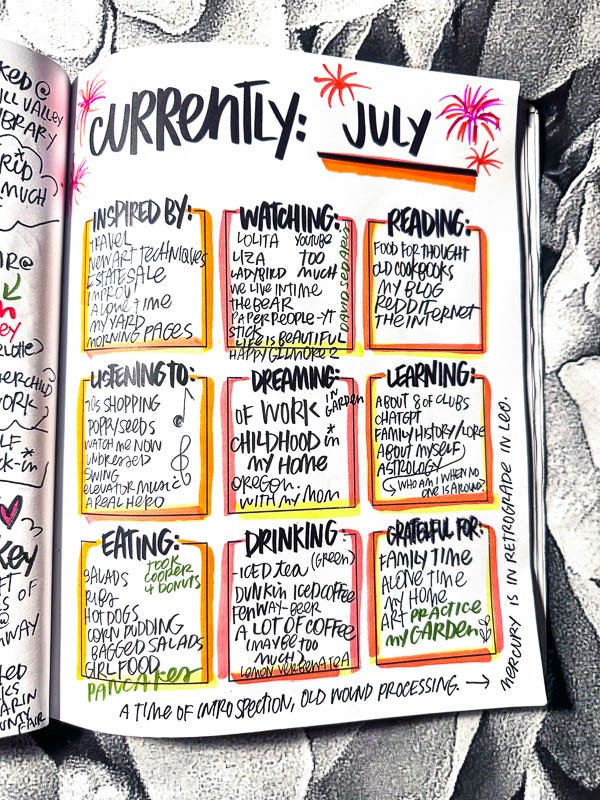 KED @
ILL VALLEY
IBRARY
RID
MUCH
AR@
ey
WORK
LF
CK-IN
Key
FT
S OF
WAY
TED
KS
ARIN
UNTY
FAIR
CURRENTLY: JULY
INSPIRED BY:
TRAVEL
NEW ART TECHNIQUES
ESTATE SALE
IMPROV
ALONE TIME
MY YARD
MORNING PAGES
WATCHING:
LOLITA YOUTUBE
LIZA TOO
LADYBIRD MUCH
WE LIVE IN TIME
THE BEAR
PAPER PEOPLE-YT
STICK
LIFE IS BEAUTIFUL
HAPPY GILMORE 2
DAVID SEDARIS
READING:
FOOD FOR THOUGHT
OLD COOKBOOKS
MY BLOG
REDDIT
THE INTERNET
LISTENING TO:
70S SHOPPING
POPPY/SEEDS
WATCH ME NOW
UNBRESSED
SWING
ELEVATOR MUSIC
A REAL HERO
DREAMING:
OF WORK IN GARDEN
CHILDHOOD in *
MY HOME
OREGON.
WITH MY MOM
LEARNING:
ABOUT 8 OF CLUBS
CHATGPT
FAMILY HISTORY/LORE
ABOUT MYSELF
ASTROLOGY
WHO AM I WHEN NO
ONE IS AROUND?
EATING:
TOOK
COOPER
4 DONUTS
SALADS
RIBS
HOT DOGS
CORN PUDDING
BAGGED SALADS
GIRL FOOD
PANCAKES
DRINKING:
-ICED TEA (GREEN)
DUNKIN ICED COFFEE
FENWAY-BEER
A LOT OF COFFEE
(MAYBE TOO
MUCH)
LEMON VERBENA TEA
GRATEFUL FOR:
FAMILY TIME
ALONE TIME
MY HOME
ART PRACTICE
MY GARDEN
A TIME OF INTROSPECTION, OLD WOUND PROCESSING. →
MERCURY IS IN RETROGRADE IN LEO.